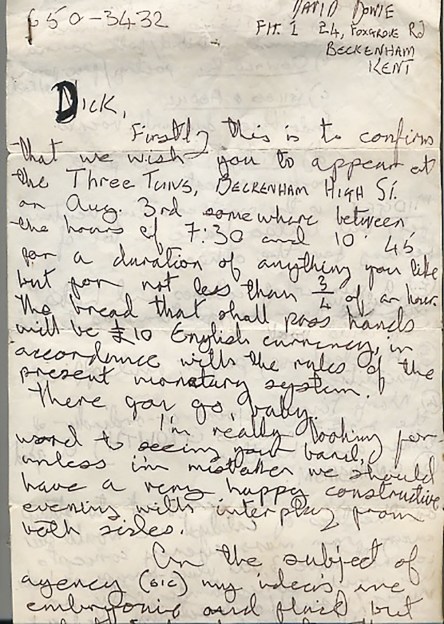 650-3432
DAVID BOWIE
Flt. 1 24, FOXGROVE RD
BECKENHAM
KENT
DICK,
Firstly this is to confirm
that we wish you to appear at
the THREE TUNS, BECKENHAM HIGH ST.
on Aug. 3rd somewhere between
the hours of 7:30 and 10:45
for a duration of anything you like
but for not less than 3/4 of an hour
The bread that shall pass hands
will be £10 English currency, in
accordance with the rules of the
present monatary system.
There you go, baby.
I'm really looking for-
word to seeing your band,
unless i'm mistaken we should
have a very happy constructive
evening with interplay from
both sides.
On the subject of
agency (sic) my ideas are
embryonic and fluid but